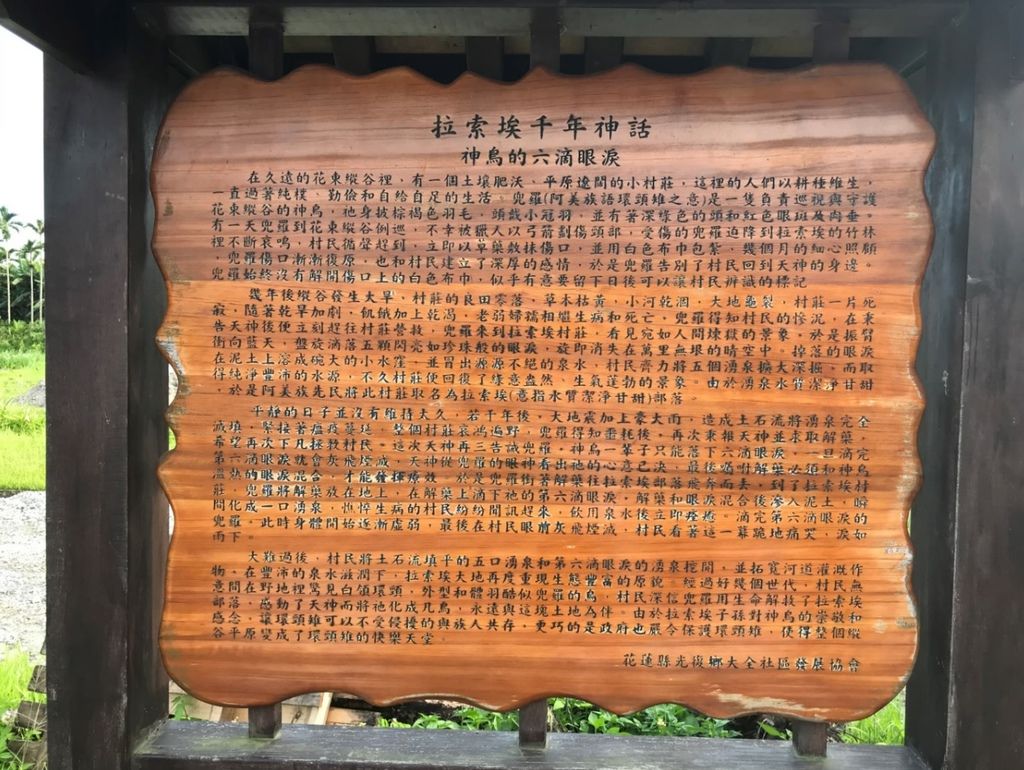 拉索埃千年神話
神鳥的六滴眼淚
在久遠的花東縱谷裡、有一個土壤肥沃、平原遼闊的小村莊，這裡的人們以耕種維生，
一直過著純樸、勤儉和自給自足的生活。兜羅(阿美族語環頸雉之意)是一隻負責巡視與守護
花東縱谷的神鳥，祂身披棕褐色羽毛，頭戴小冠羽，並有著深綠色的頭和紅色眼斑及肉垂。
有一天兜羅到花東縱谷例巡，不幸被獵人以弓箭劃傷頭部，受傷的兜羅迫降到拉索埃的竹林
裡不斷哀鳴，村民循聲趕到，立即以草藥敷抹傷口，並用白色布巾包紮，幾個月的細心照顧
，兜羅傷口漸漸復原，也和村民建立了深厚的感情，於是兜羅告別了村民回到天神的身邊。
兜羅始終沒有解開傷口上的白色布巾，似乎有意要留下日後可以讓村民辨識的標記
幾年後縱谷發生大旱，村莊的良田零落，草木枯黃，小河乾涸，大地龜裂，村莊一片死
寂，隨著乾旱加劇，飢餓加上乾渴，老弱婦孺相繼生病和死亡，兜羅得知村民的慘況，在稟
告天神後便立刻趕往村莊營救，兜羅來到拉索埃村莊，看見宛如人間煉獄的景象，於是振臂
衝向藍天，盤旋滴落五顆閃亮如珍珠般的眼淚，旋即消失在萬里無垠的晴空中。掉落的眼淚
在泥土上溶成碗大的小水窪，並冒出源源不絕的泉水，村民齊力將五個湧泉擴大深掘，而取
得純淨豐沛的水源，不久村莊便回復了綠意盎然、生氣蓬勃的景象。由於湧泉水質潔淨甘甜
，於是阿美族先民將此村莊取名為拉索埃(意指水質潔淨甘甜)部落。
平靜的日子並沒有維持太久，若干年後，大地震加上豪大雨，造成土石流將湧泉完全
滅填，緊接著瘟疫蔓延，整個村莊哀鴻遍野，兜羅得知噩耗後，再次稟報天神並求取解藥，
希望再次下凡拯救村民。這次天神再三告誡兜羅，神鳥一輩子只能落下六滴眼淚，一旦滴完
第六滴眼淚就會灰飛煙滅，天神從兜羅的眼神看出祂的心意已決，最後囑咐解藥必須和神鳥
溫熱的眼淚混合，才能發揮療效，於是兜羅銜著解藥往拉索埃部落飛奔而去，到了拉索埃村
莊，兜羅將解藥放在地上，在解藥上滴下祂的第六滴眼淚，解藥和眼淚混合後滲入泥土，瞬
間化成一口湧泉，憔悴生病的村民紛紛聞訊趕來，飲用泉水後立即痊癒。滴完第六滴眼淚的
兜羅，此時身體開始逐漸虛弱，最後在村民眼前灰飛煙滅，村民看著這一幕跪地痛哭，淚如
雨下。
大難過後，村民將土石流填平的五口湧泉和第六滴眼淚的湧泉挖開，並拓寬河道灌溉作
物，在豐沛的泉水滋潤下，拉索埃大地再度重現生態豐富的原貌。經過好幾個世代，村民無
意間在野地裡驚見白領的雉鳥，外型和體羽酷似兜羅的鳥，村民深信兜羅用生命解救了拉索埃
部落，感動了天神而將祂化成凡鳥，永遠與這塊土地為伴，由於拉索埃子孫對神鳥的崇敬和
感念，讓環頸雉可以不受侵擾的與族人共存，更巧的是政府也嚴令保護環頸雉，使得整個縱
谷平原變成了環頸雉的快樂天堂。
花蓮縣光復鄉大全社區發展協會